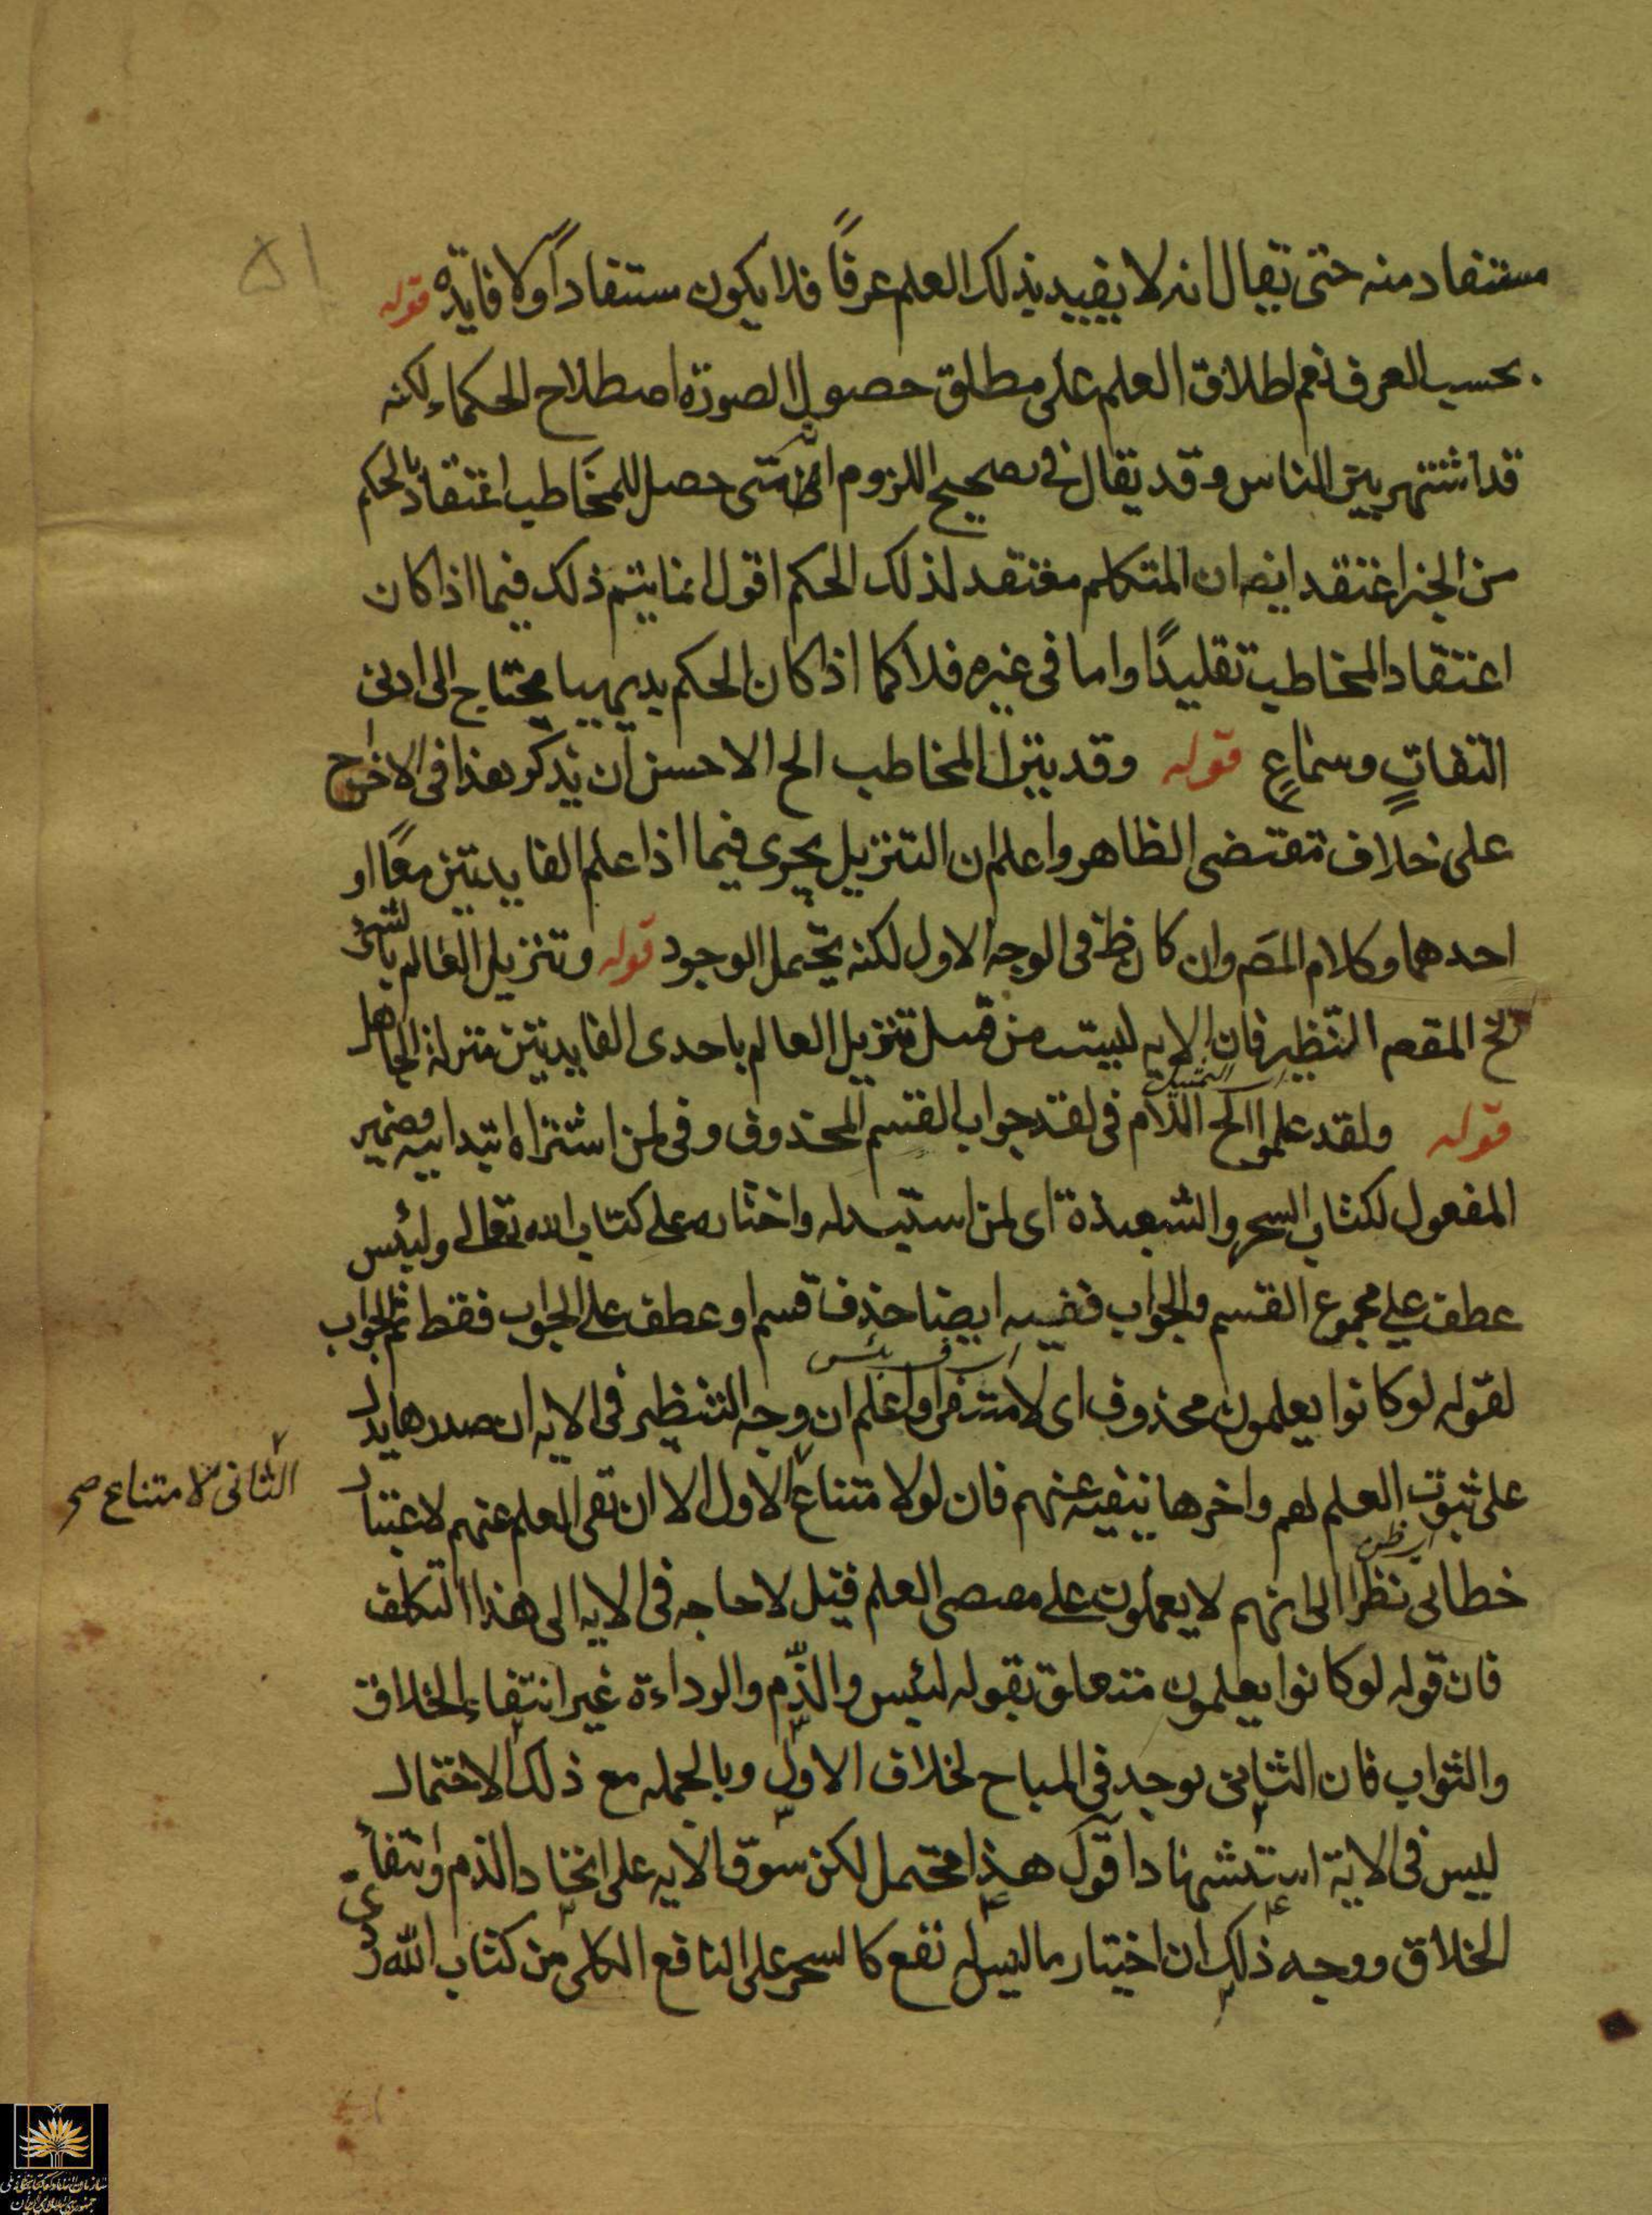 ۵۱
مستفاد منه حتى يقال انه لا يفيد بذلك العلم عرفاً فلا يكون مستفاداً ولا فايدة قوله
بحسب العرف نعم اطلاق العلم على مطلق حصول الصورة اصطلاح الحكماء لكنه
قد اشتهر بين الناس وقد يقال في تصحيح اللزوم متى حصل للمخاطب اعتقاد بالحكم
من الخبر اعتقد ايضا ان المتكلم معتقد لذلك الحكم اقول انما يتم ذلك فيما اذا كان
اعتقاد المخاطب تقليدًا واما في غيره فلا كما اذا كان الحكم بديهيا محتاج الى ادنى
التفاتٍ وسماعٍ قوله وقد ينزل المخاطب الخ الاحسن ان يذكر هذا في الاخراج
على خلاف مقتضى الظاهر واعلم ان التنزيل يجرى فيما اذا علم الفايدتين معًا او
احدهما وكلام المصَ وان كان ظ في الوجه الاول لكنه يحتمل الوجود قوله وتنزيل العالم بالشئ
الخ المقصَ التنظير فان الايه ليست من قبيل تنزيل العالم باحدى الفايدتين منزلة الجاهل
التمثيل
قوله ولقد علموا الخ اللام في لقد جواب القسم المحذوف وفي لمن اشتراه ابتداييه وضمير
المفعول لكتاب السحر والشعبذة اى لمن استبدله واختاره على كتاب الله تعالى ولبئس
عطف على مجموع القسم والجواب ففيه ايضا حذف قسم او عطف على الجواب فقط ثم الجواب
بئس
لقوله لو كانوا يعلمون محذوف اى لامتنعوا واعلم ان وجه التنظير في الايه ان صدرها يدل
على ثبوت العلم لهم واخرها ينفيه عنهم فان لو لامتناع الاول الا ان نفى العلم عنهم لاعتبار
الثانى لامتناع صح
خطابى نظرا الى انهم لا يعملون على مقتضى العلم قيل لا حاجه في الايه الى هذا التكلف
فان قوله لو كانوا يعلمون متعلق بقوله لبئس والذّم والرداءة غير انتفاء الخلاق
والثواب فان الثانى يوجد في المباح بخلاف الاول وبالجمله مع ذلك الاحتمال
ليس في الاية استشهاد اقول هذا محتمل لكن سوق الايه على اتحاد الذم وانتفاء
الخلاق ووجه ذلك ان اختيار ما ليس له نفع كالسحر على النافع الكلى من كتاب الله